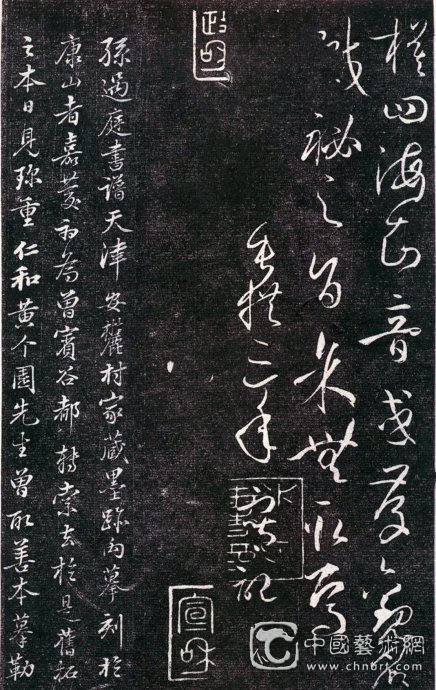 模四海知音或存觀省
緘秘之旨余無取焉
垂拱三年寫記
政和
宣和
孫過庭書譜天津安麓村家藏墨跡向摹刻於
康山者嘉慶初為曾賓谷都轉索去於是舊拓
之本日見珍重仁和黃个園先生曾取善本摹勒
中國藝術網
www.chnart.com